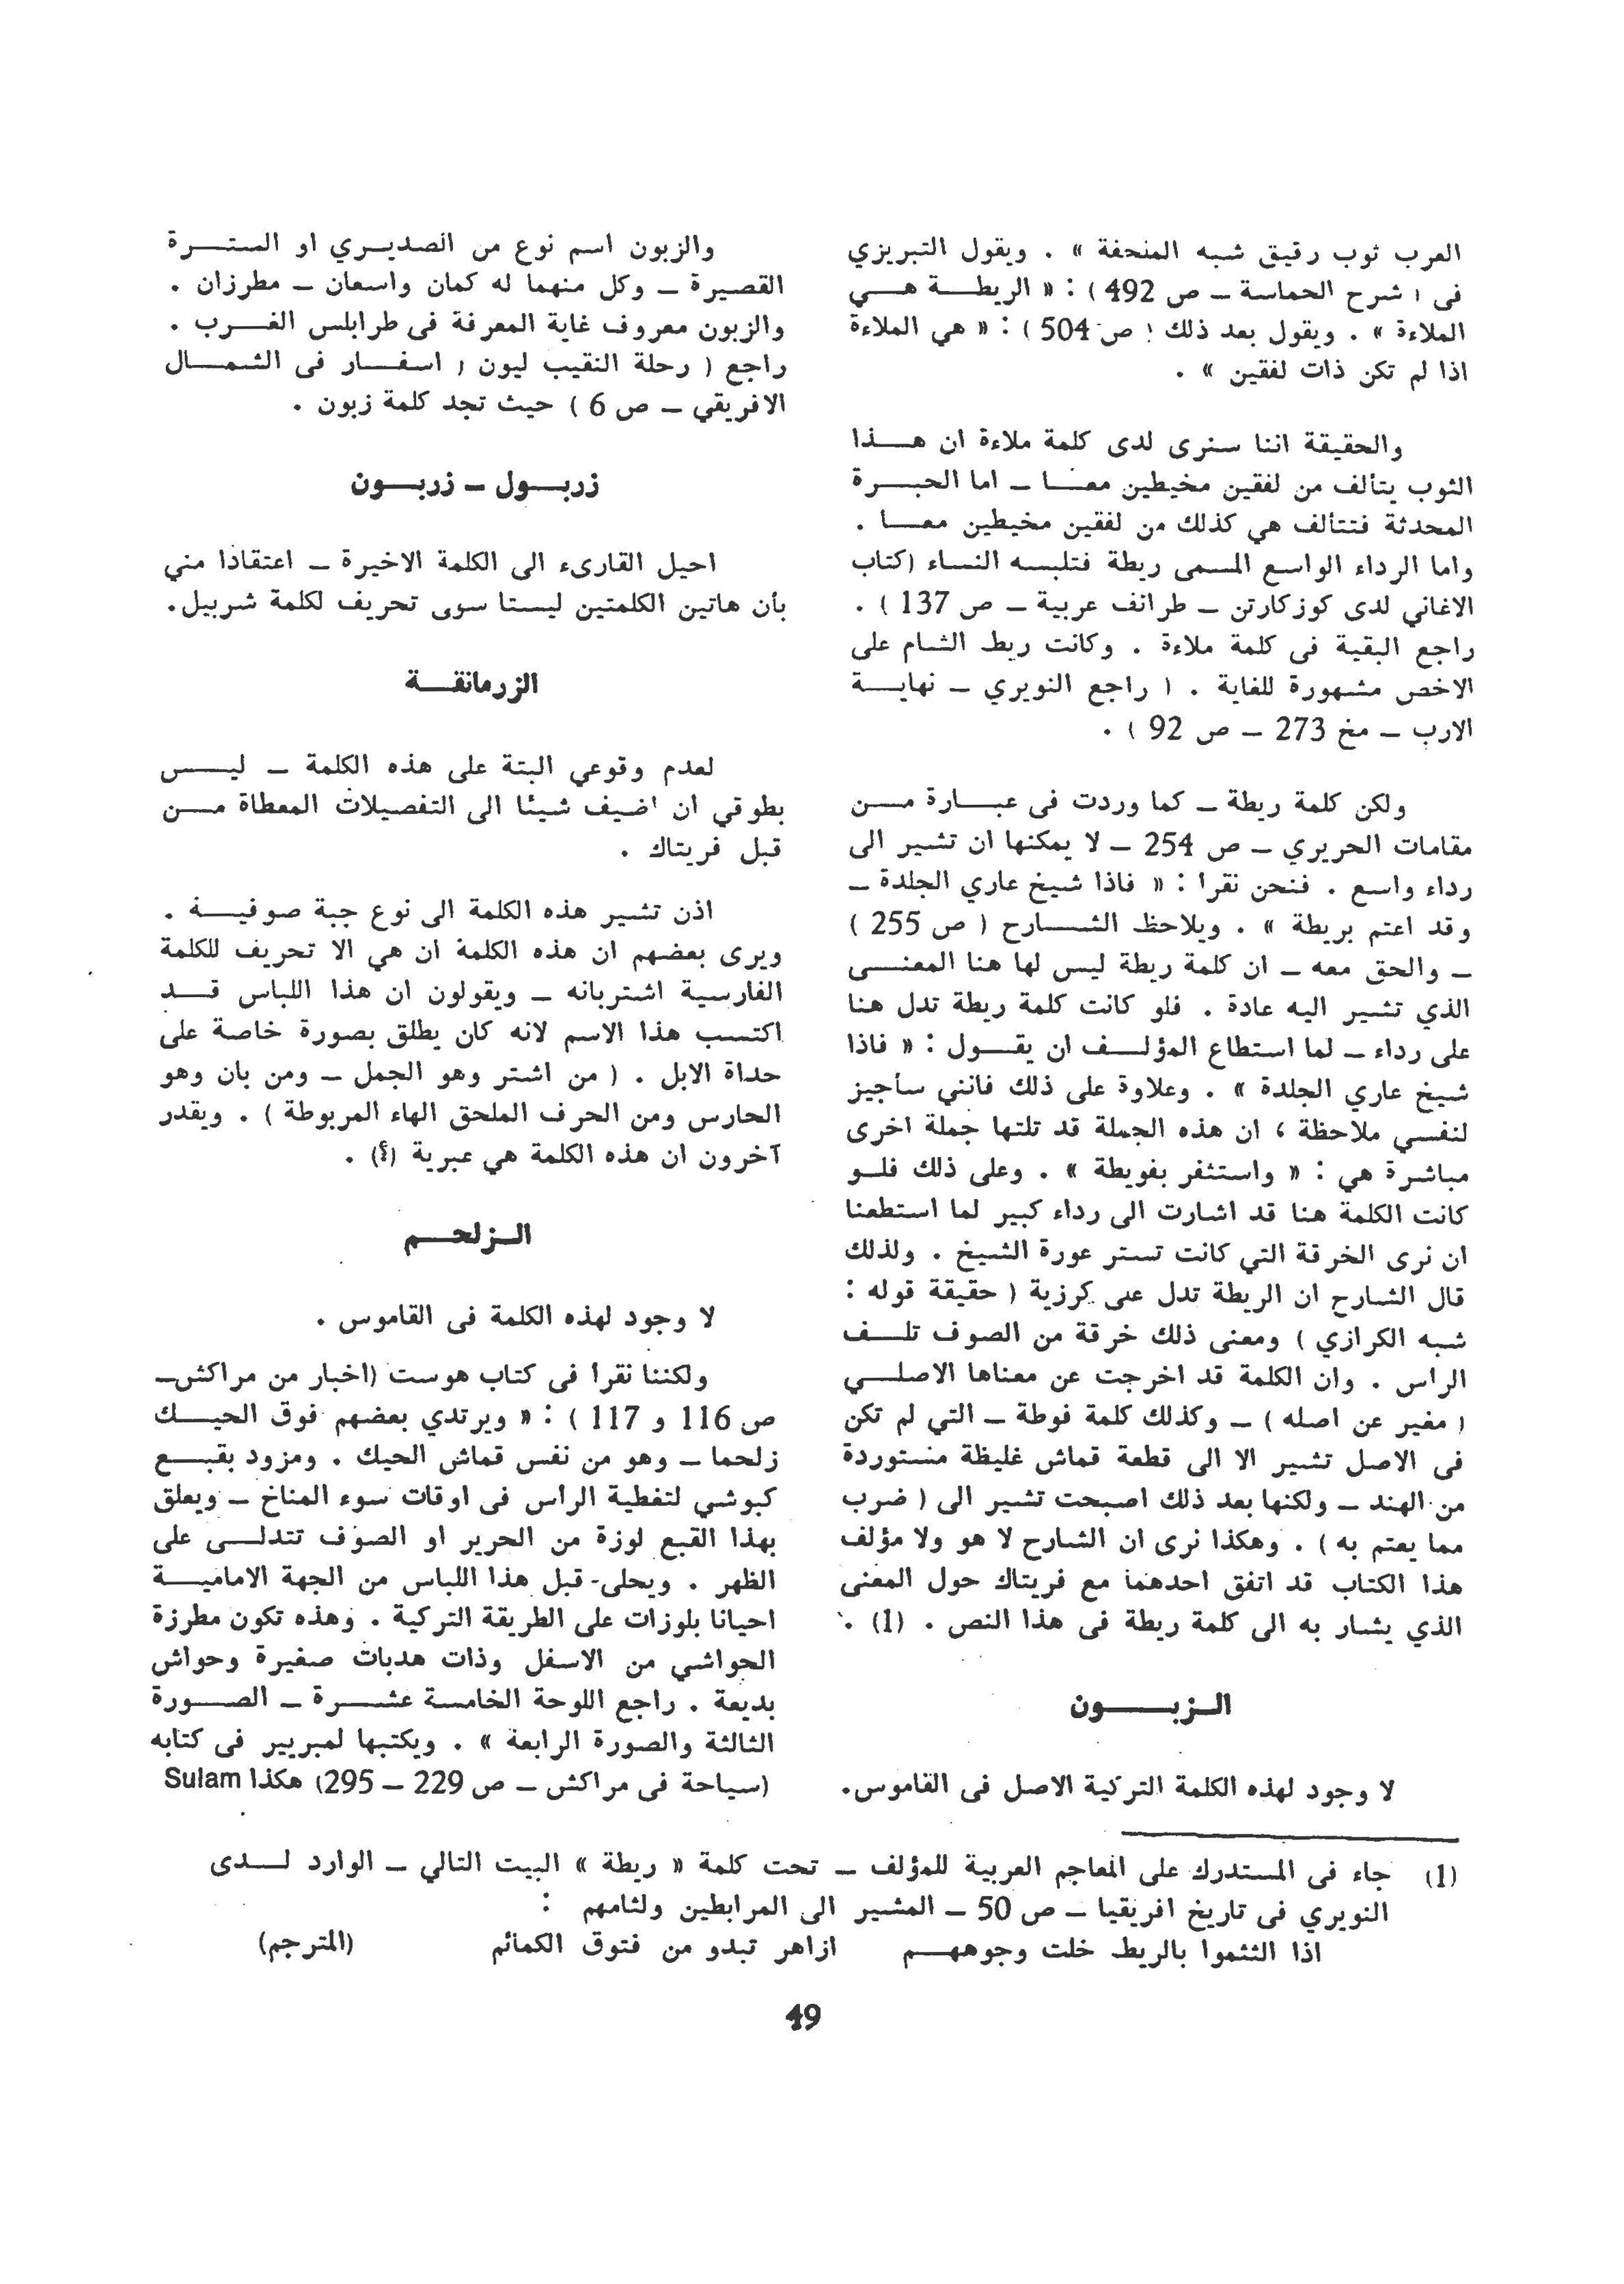 العرب ثوب رقيق شبه المنحفة » . ويقول التبريزي
فى ( شرح الحماسة ـ ص 492 ) : « الريطـــة هـــي
الملاءة » . ويقول بعد ذلك ( ص 504 ) : « هي الملاءة
اذا لم تكن ذات لفقين » .
والحقيقة اننا سنرى لدى كلمة ملاءة ان هـــذا
الثوب يتألف من لفقين مخيطين معـــا ـ اما الحبـــرة
المحدثة فتتألف هي كذلك من لفقين مخيطين معـــا .
واما الرداء الواسع المسمى ريطة فتلبسه النساء (كتاب
الاغاني لدى كوزكارتن ـ طرائف عربية ـ ص 137 ) .
راجع البقية فى كلمة ملاءة . وكانت ريط الشام على
الاخص مشهورة للغاية . ( راجع النويري ـ نهايـــة
الارب ـ مخ 273 ـ ص 92 ) .
ولكن كلمة ريطة ـ كما وردت فى عبـــارة مـــن
مقامات الحريري ـ ص 254 ـ لا يمكنها ان تشير الى
رداء واسع . فنحن نقرا : « فاذا شيخ عاري الجلدة ـ
وقد اعتم بريطة » . ويلاحظ الشـــارح ( ص 255 )
ـ والحق معه ـ ان كلمة ريطة ليس لها هنا المعنـــى
الذي تشير اليه عادة . فلو كانت كلمة ريطة تدل هنا
على رداء ـ لما استطاع المؤلـــف ان يقـــول : « فاذا
شيخ عاري الجلدة » . وعلاوة على ذلك فانني سأجيز
لنفسي ملاحظة ، ان هذه الجملة قد تلتها جملة اخرى
مباشرة هي : « واستثفر بفويطة » . وعلى ذلك فلـــو
كانت الكلمة هنا قد اشارت الى رداء كبير لما استطعنا
ان نرى الخرقة التي كانت تستر عورة الشيخ . ولذلك
قال الشارح ان الريطة تدل على كرزية ( حقيقة قوله :
شبه الكرازي ) ومعنى ذلك خرقة من الصوف تلـــف
الراس . وان الكلمة قد اخرجت عن معناها الاصلـــي
( مغير عن اصله ) ـ وكذلك كلمة فوطة ـ التي لم تكن
فى الاصل تشير الا الى قطعة قماش غليظة مستوردة
من الهند ـ ولكنها بعد ذلك اصبحت تشير الى ( ضرب
مما يعتم به ) . وهكذا نرى ان الشارح لا هو ولا مؤلف
هذا الكتاب قد اتفق احدهما مع فريتاك حول المعنى
الذي يشار به الى كلمة ريطة فى هذا النص . (1) .
الـزبـــــون
لا وجود لهذه الكلمة التركية الاصل فى القاموس.
والزبون اسم نوع من الصديـــري او الستـــرة
القصيرة ـ وكل منهما له كمان واسعان ـ مطرزان .
والزبون معروف غاية المعرفة فى طرابلس الغـــرب .
راجع ( رحلة النقيب ليون ( اسفـــار فى الشمـــال
الافريقي ـ ص 6 ) حيث تجد كلمة زبون .
زربـــول ـ زربـــون
احيل القارىء الى الكلمة الاخيرة ـ اعتقادا مني
بأن هاتين الكلمتين ليستا سوى تحريف لكلمة شربيل.
الزرمانقـــة
لعدم وقوعي البتة على هذه الكلمة ـ ليـــس
بطوقي ان اضيف شيئا الى التفصيلات المعطاة مـــن
قبل فريتاك .
اذن تشير هذه الكلمة الى نوع جبة صوفيـــة .
ويرى بعضهم ان هذه الكلمة ان هي الا تحريف للكلمة
الفارسية اشتربانه ـ ويقولون ان هذا اللباس قـــد
اكتسب هذا الاسم لانه كان يطلق بصورة خاصة على
حداة الابل . ( من اشتر وهو الجمل ـ ومن بان وهو
الحارس ومن الحرف الملحق الهاء المربوطة ) . ويقدر
آخرون ان هذه الكلمة هي عبرية (؟) .
الـزلحـــم
لا وجود لهذه الكلمة فى القاموس .
ولكننا نقرا فى كتاب هوست (اخبار من مراكش ـ
ص 116 و 117 ) : « ويرتدي بعضهم فوق الحيـــك
زلحما ـ وهو من نفس قماش الحيك . ومزود بقبـــع
كبوشي لتغطية الراس فى اوقات سوء المناخ ـ ويعلق
بهذا القبع لوزة من الحرير او الصوف تتدلـــى على
الظهر . ويحلى قبل هذا اللباس من الجهة الاماميـــة
احيانا بلوزات على الطريقة التركية . وهذه تكون مطرزة
الحواشي من الاسفل وذات هدبات صغيرة وحواش
بديعة . راجع اللوحة الخامسة عشـــرة ـ الصـــورة
الثالثة والصورة الرابعة » . ويكتبها لمبريير فى كتابه
(سياحة فى مراكش ـ ص 229 ـ 295) هكذا Sulam
(1) جاء فى المستدرك على المعاجم العربية للمؤلف ـ تحت كلمة « ريطة » البيت التالي ـ الوارد لـــدى
النويري فى تاريخ افريقيا ـ ص 50 ـ المشير الى المرابطين ولثامهم :
اذا التثموا بالريط خلت وجوههـــم ازاهر تبدو من فتوق الكمائم (المترجم)
49